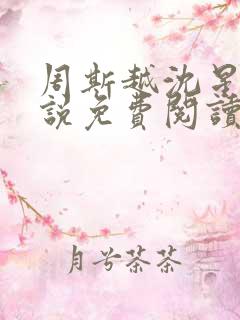 周斯越沈星
說免費閱讀
月兮茶茶